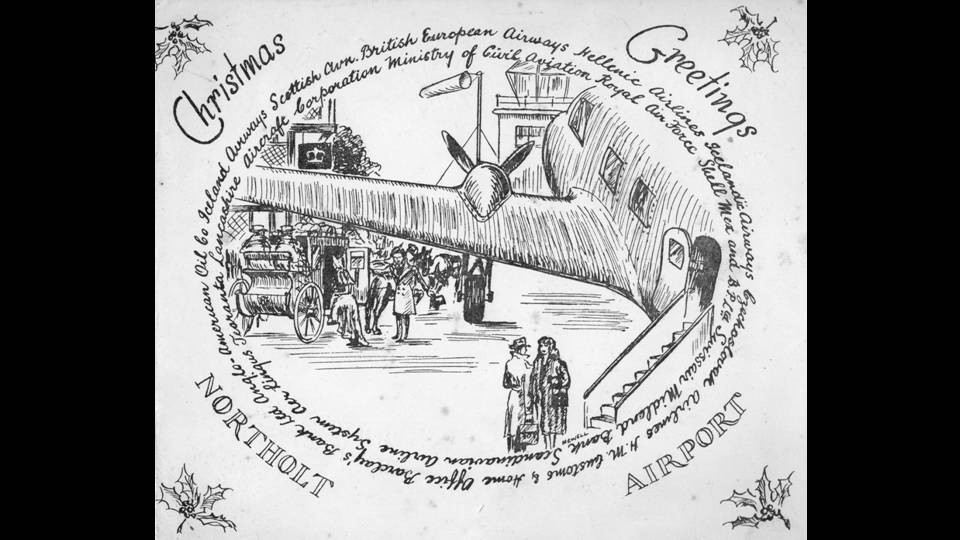 Christmas Greetings
Barclay's Bank Ltd Anglo-American Oil Co Iceland Airways Scottish Avn. British European Airways Hellenic Airlines Icelandic Airways Czechoslovak Airlines H.M. Customs & Home Office
Aer Lingus Teoranta Lancashire Aircraft Corporation Ministry of Civil Aviation Royal Air Force Shell Mex and B.P. Ltd Swissair Midland Bank Scandinavian Airline System
NORTHOLT AIRPORT